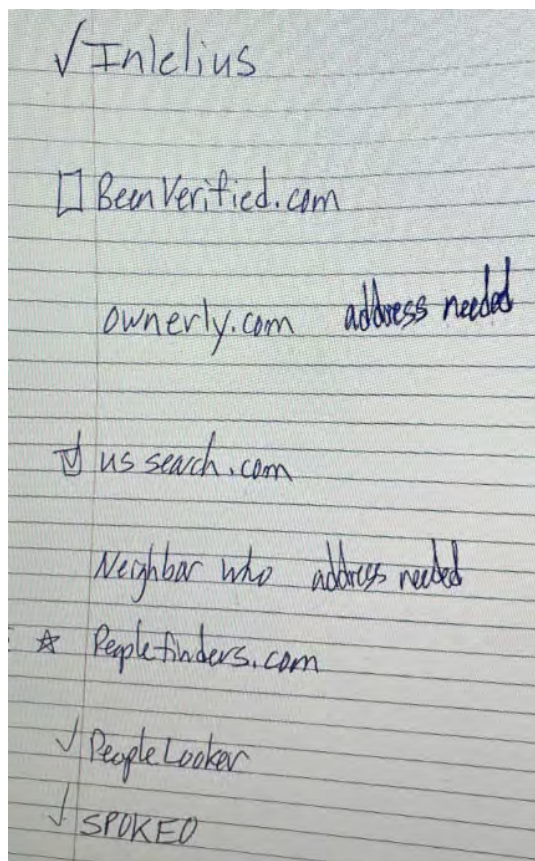 ✓ Inlelius
☐ BeenVerified.com
ownerly.com address needed
☑ us search.com
Neighbor who address needed
☆ Peoplefinders.com
✓ PeopleLooker
✓ SPOKEO